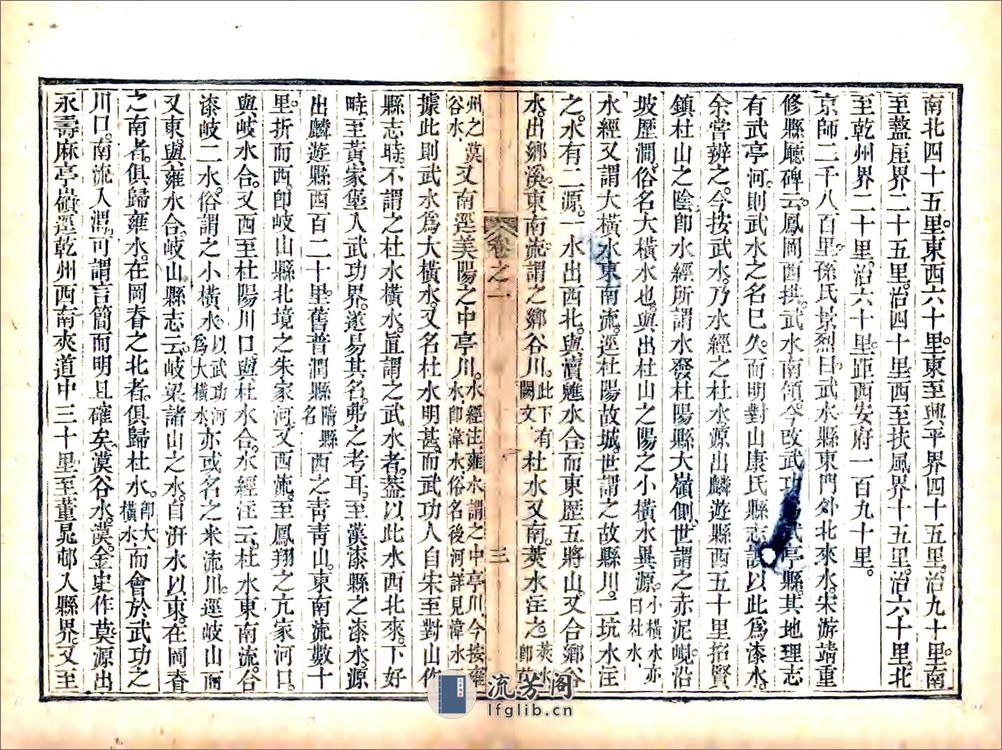 南北四十五里東西六十里東至興平界四十五里治九十里南
至盩厔界二十五里治四十里西至扶風界十五里治六十里北
至乾州界二十里治六十里距西安府一百九十里
京師二千八百里孫氏景烈曰武水縣東門外北來水宋游靖重
修縣廳碑云鳳岡西拱武水南領今改武功為武亭縣其地理志
有武亭河則武水之名已久而明對山康氏縣志誤以此為漆水
余嘗辨之今按武水乃水經之杜水源出麟遊縣西五十里招賢
鎮杜山之陰卽水經所謂水發杜陽縣大嶺側世謂之赤泥峴沿
坡歷澗俗名大橫水也與出杜山之陽之小橫水異源小橫水亦曰杜水
水經又謂大橫水東南流逕杜陽故城世謂之故縣川二坑水注
之水有二源一水出西北與瀆魋水合而東歷五將山又合鄉谷
水出鄉溪東南流謂之鄉谷川此下有闕文杜水又南莢水注之莢水卽
卷之一
三
州之漠谷水又南逕美陽之中亭川水經注雍水謂之中亭川今按雍水卽湋水俗名後河詳見湋水
據此則武水為大橫水又名杜水明甚而武功人自宋至對山作
縣志時不謂之杜水橫水直謂之武水者葢以此水西北來下好
畤至黃家堡入武功界遂易其名弗之考耳至漢漆縣之漆水源
出麟遊縣西百二十里舊普潤縣隋縣名西之青山東南流數十
里折而西卽岐山縣北境之朱家河又西流至鳳翔之亢家河口
與岐水合又西至杜陽川口與杜水合水經注云杜水東南流合
漆岐二水俗謂之小橫水以武功河為大橫水亦或名之米流川逕岐山而
又東與雍水合岐山縣志云岐梁諸山之水自汧水以東在岡脊
之南者俱歸雍水在岡脊之北者俱歸杜水卽大橫水而會於武功之
川口南流入渭可謂言簡而明且確矣漠谷水漠金史作莫源出
永壽麻亭嶺逕乾州西南夾道中三十里至董晁邨入縣界又至
流芳阁
lfglib.cn